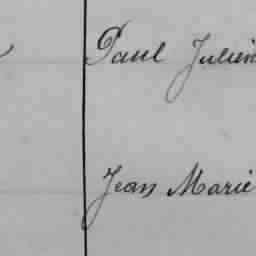 Paul Julien
Jean Marie